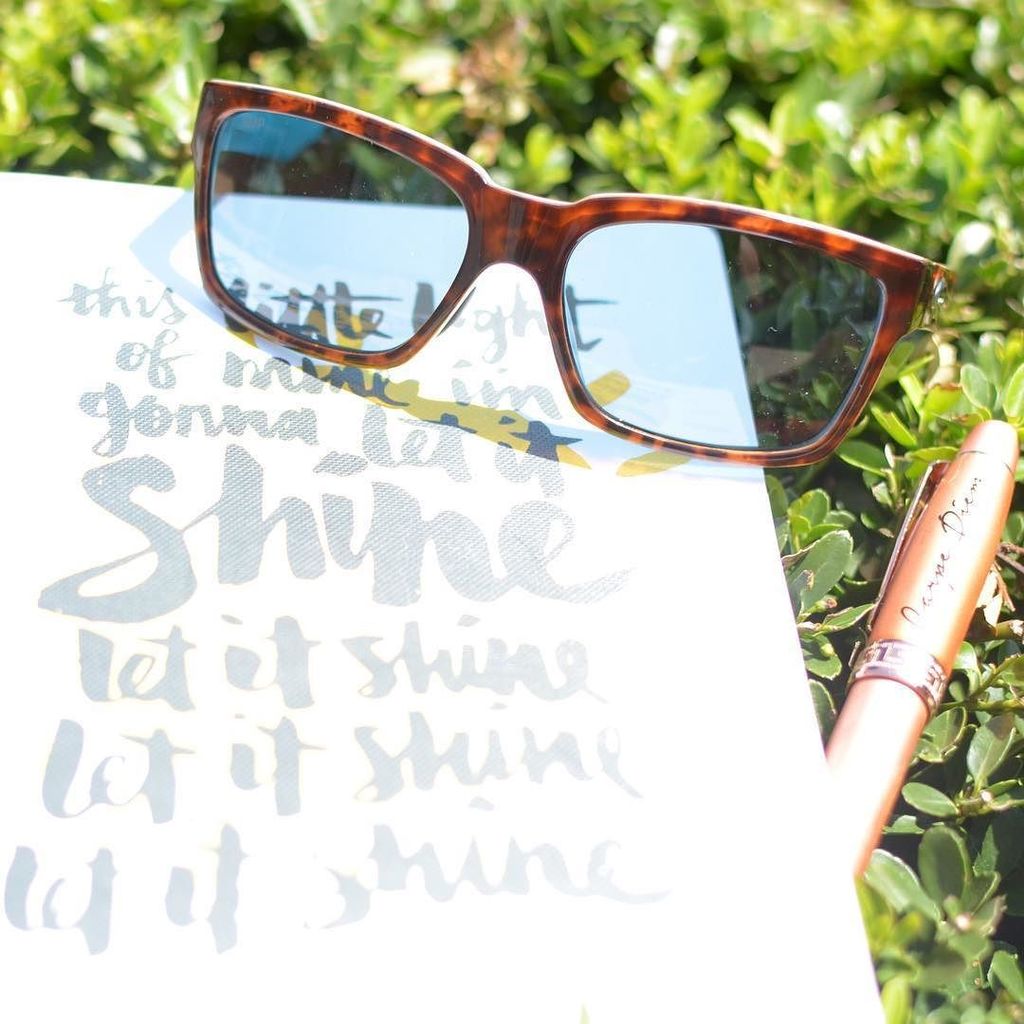 this little light
of mine im
gonna let it
Shine
let it shine
let it shine
let it shine
Carpe Diem